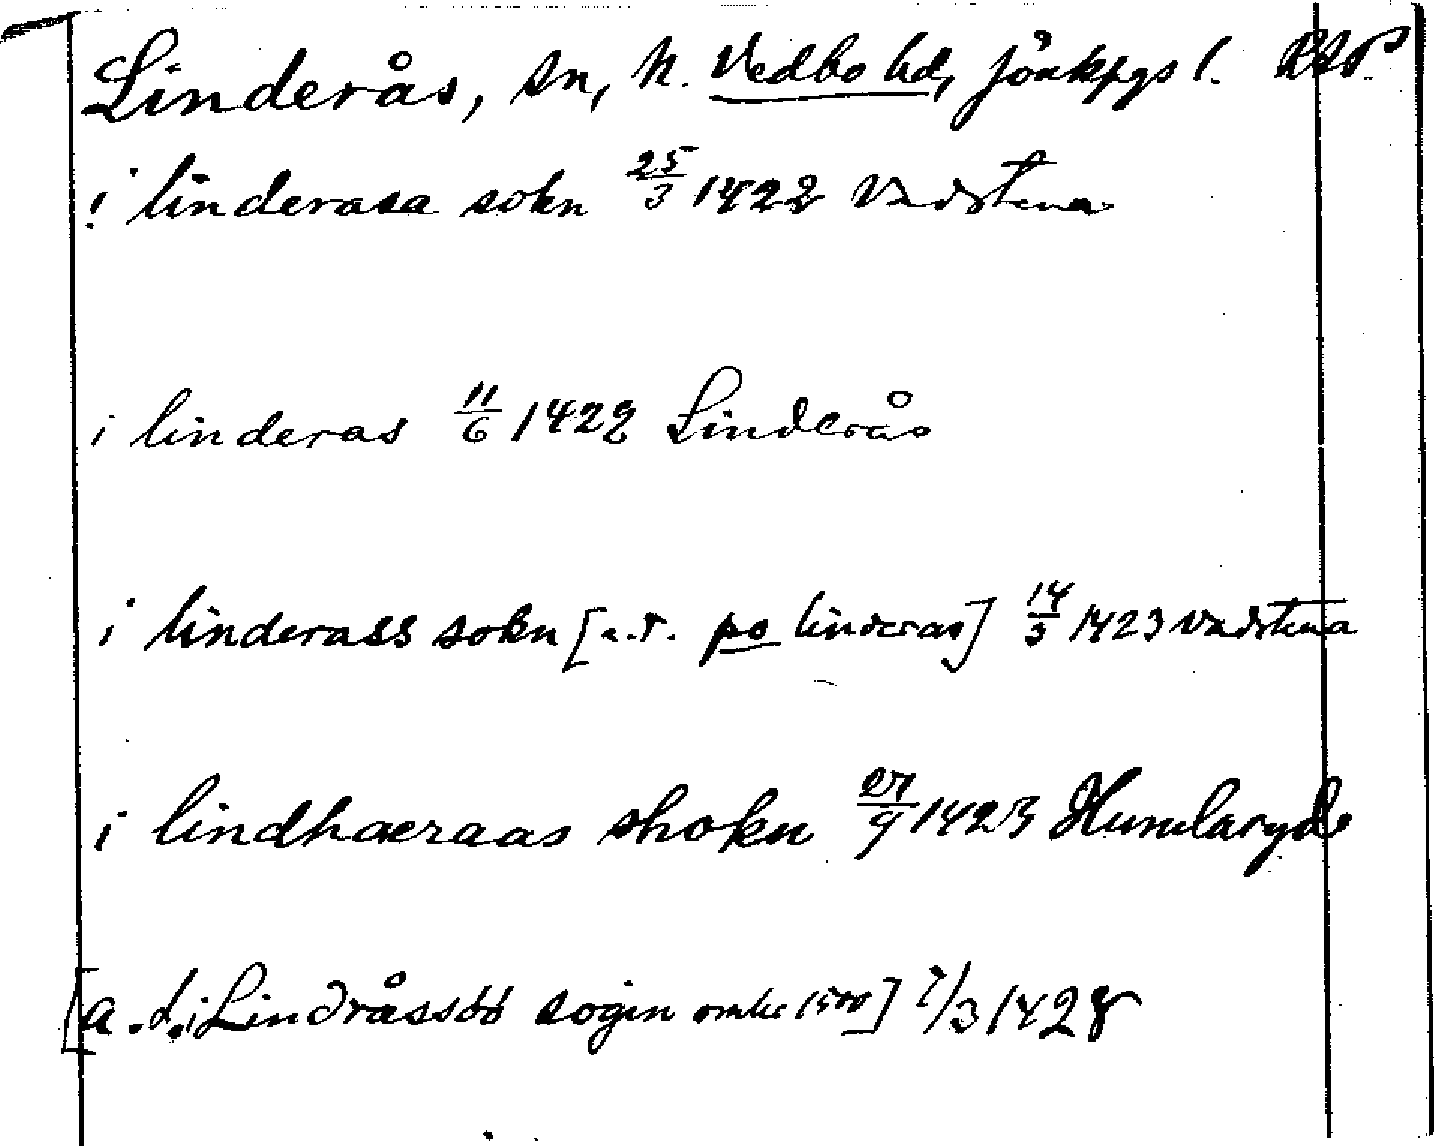 Linderås, sn, N. Vedbo hd, Jönkpgs l. RAP.
i linderasa sokn 25/3 1422 Vadstena
i linderas 11/6 1422 Linderås
i linderass sokn [a.d. po linderas] 14/3 1423 Vadstena
i lindhaeraas shokn 27/9 1423 Humlaryd
[a.d. i Lindråssøø sogin omkr 1500] 7/3 1428